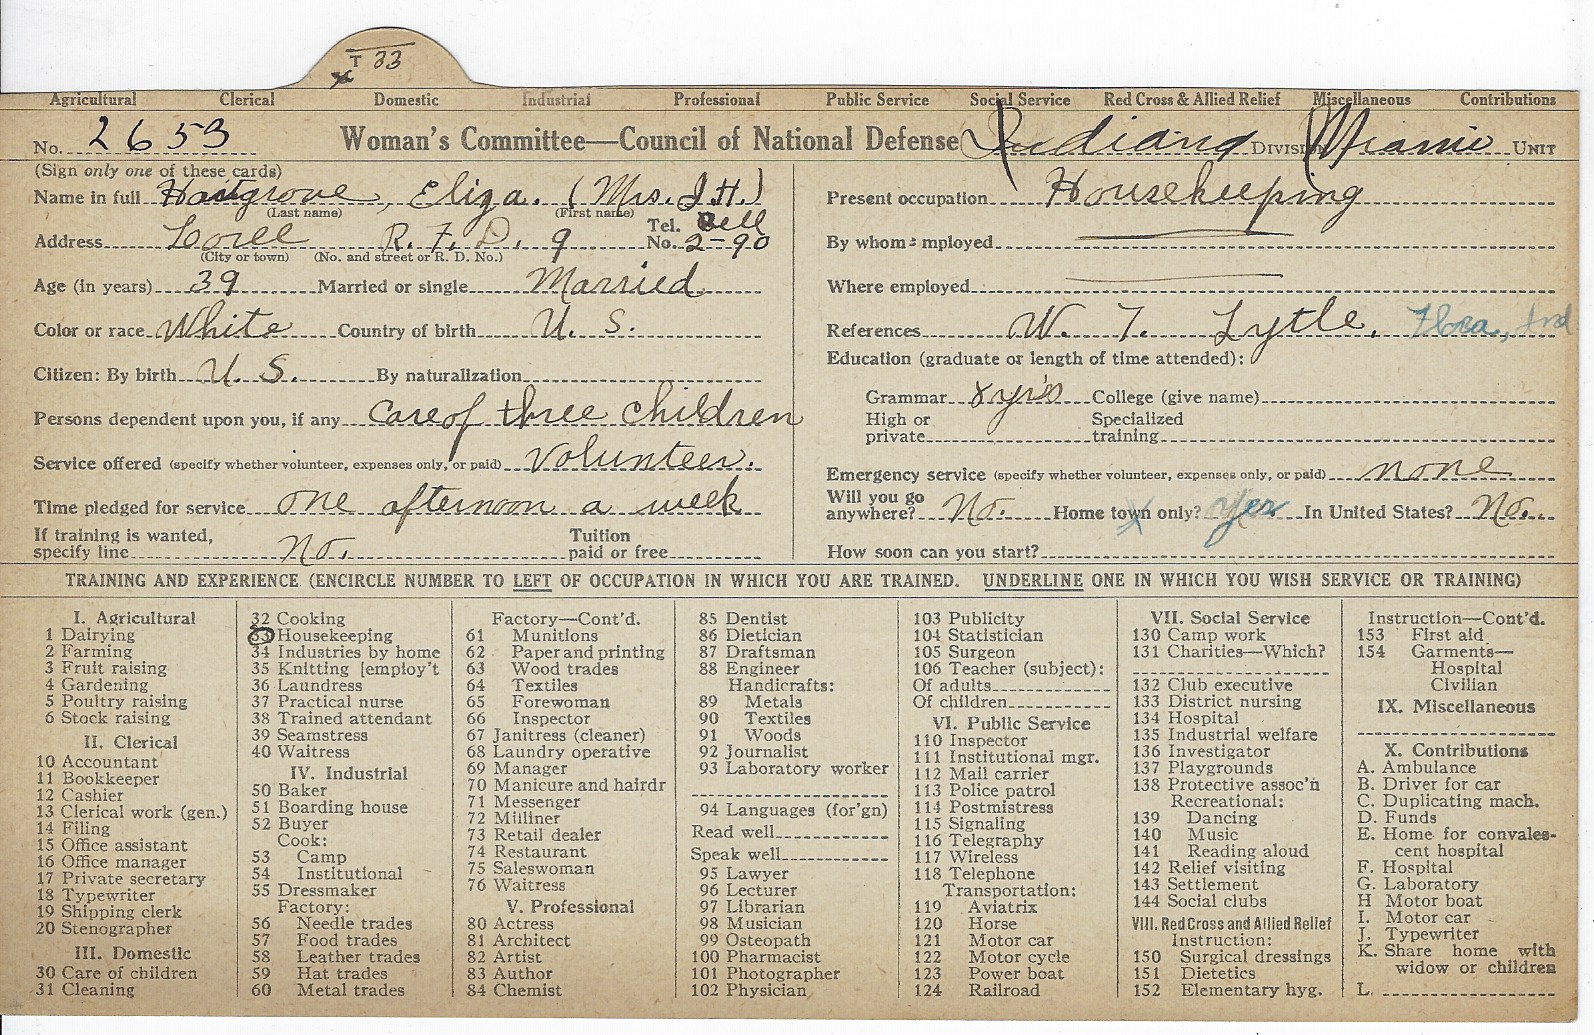 T 33
Agricultural Clerical Domestic Industrial Professional Public Service Social Service Red Cross & Allied Relief Miscellaneous Contributions
No. 2653 Woman's Committee—Council of National Defense Indiana Division Miami Unit
(Sign only one of these cards)
Name in full Hastgrove, Eliza. (Mrs. J. H.)
(Last name) (First name)
Address R. F. D. 9 Tel. No. Bell 2-90
(City or town) (No. and street or R. D. No.)
Age (in years) 39 Married or single Married
Color or race White Country of birth U. S.
Citizen: By birth U. S. By naturalization
Persons dependent upon you, if any Care of three children
Service offered (specify whether volunteer, expenses only, or paid) Volunteer.
Time pledged for service one afternoon a week
If training is wanted, specify line No. Tuition paid or free
Present occupation Housekeeping
By whom employed
Where employed
References W. T. Lytle, Flora, Ind
Education (graduate or length of time attended):
Grammar 8 yrs College (give name)
High or private Specialized training
Emergency service (specify whether volunteer, expenses only, or paid) none
Will you go anywhere? No. Home town only? x yes In United States? No.
How soon can you start?
TRAINING AND EXPERIENCE (ENCIRCLE NUMBER TO LEFT OF OCCUPATION IN WHICH YOU ARE TRAINED. UNDERLINE ONE IN WHICH YOU WISH SERVICE OR TRAINING)
I. Agricultural
1 Dairying
2 Farming
3 Fruit raising
4 Gardening
5 Poultry raising
6 Stock raising
II. Clerical
10 Accountant
11 Bookkeeper
12 Cashier
13 Clerical work (gen.)
14 Filing
15 Office assistant
16 Office manager
17 Private secretary
18 Typewriter
19 Shipping clerk
20 Stenographer
III. Domestic
30 Care of children
31 Cleaning
32 Cooking
33 Housekeeping
34 Industries by home
35 Knitting [employ't
36 Laundress
37 Practical nurse
38 Trained attendant
39 Seamstress
40 Waitress
IV. Industrial
50 Baker
51 Boarding house
52 Buyer
Cook:
53 Camp
54 Institutional
55 Dressmaker
Factory:
56 Needle trades
57 Food trades
58 Leather trades
59 Hat trades
60 Metal trades
Factory—Cont'd.
61 Munitions
62 Paper and printing
63 Wood trades
64 Textiles
65 Forewoman
66 Inspector
67 Janitress (cleaner)
68 Laundry operative
69 Manager
70 Manicure and hairdr
71 Messenger
72 Milliner
73 Retail dealer
74 Restaurant
75 Saleswoman
76 Waitress
V. Professional
80 Actress
81 Architect
82 Artist
83 Author
84 Chemist
85 Dentist
86 Dietician
87 Draftsman
88 Engineer
Handicrafts:
89 Metals
90 Textiles
91 Woods
92 Journalist
93 Laboratory worker
94 Languages (for'gn)
Read well
Speak well
95 Lawyer
96 Lecturer
97 Librarian
98 Musician
99 Osteopath
100 Pharmacist
101 Photographer
102 Physician
103 Publicity
104 Statistician
105 Surgeon
106 Teacher (subject):
Of adults
Of children
VI. Public Service
110 Inspector
111 Institutional mgr.
112 Mail carrier
113 Police patrol
114 Postmistress
115 Signaling
116 Telegraphy
117 Wireless
118 Telephone
Transportation:
119 Aviatrix
120 Horse
121 Motor car
122 Motor cycle
123 Power boat
124 Railroad
VII. Social Service
130 Camp work
131 Charities—Which?
132 Club executive
133 District nursing
134 Hospital
135 Industrial welfare
136 Investigator
137 Playgrounds
138 Protective assoc'n
Recreational:
139 Dancing
140 Music
141 Reading aloud
142 Relief visiting
143 Settlement
144 Social clubs
VIII. Red Cross and Allied Relief
Instruction:
150 Surgical dressings
151 Dietetics
152 Elementary hyg.
Instruction—Cont'd.
153 First aid
154 Garments—
Hospital
Civilian
IX. Miscellaneous
X. Contributions
A. Ambulance
B. Driver for car
C. Duplicating mach.
D. Funds
E. Home for convales-
cent hospital
F. Hospital
G. Laboratory
H Motor boat
I. Motor car
J. Typewriter
K. Share home with
widow or children
L.